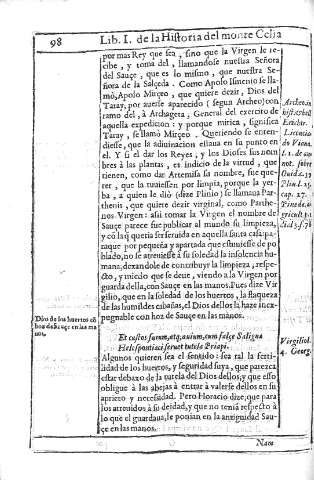 98
Lib. I. de la Historia del monte Celia
por mas Rey que sea, sino que la Virgen le re-
cibe, y toma del, llamandose nuestra Señora
del Sauçe, que es lo mismo, que nuestra Se-
ñora de la Salçeda. Como Apolo Ismenio se lla-
mò, Apolo Mirçeo, que quiere dezir, Dios del
Taray, por auerse aparecido (segun Archeo) con
ramo del, à Archagera, General del exercito de
aquella expedicion: y porque mirica, significa
Taray, se llamò Mirçeo. Queriendo se enten-
diesse, que la adiuinacion estaua en su punto en
el. Y si el dar los Reyes, y los Dioses sus nom
bres à las plantas, es indicio de la virtud, que
tienen, como dar Artemisa su nombre, fue que-
rer, que la tuuiessen por limpia, porque la yer-
ba, a quien le diò (dize Plinio) se llamaua Par-
thenis, que quiere dezir virginal, como Parthe-
nos Virgen: assi tomar la Virgen el nombre de
Sauçe parece fue publicar al mundo su limpieza,
y cõ la q̃ queria ser seruida en aquella santa casa, pa-
raque por pequeña y apartada que estuuiesse de po
blado, no se atreuiesse à su soledad la insolencia hu
mana, dexandole de contribuyr la limpieza, respe-
cto, y miedo que se deue, viendo a la Virgen por
guarda della, con Sauçe en las manos. Pues dize Vir
gilio, que en la soledad de los huertos, la flaqueza
de las humildes cabañas, el Dios dellos la haze inex-
pugnable con hoz de Sauçe en las manos.
Et custos furum, atq; auium, cum falçe Saligna
Helespontici seruet tutela Priapi.
Algunos quieren sea el sentido: sea tal la ferti-
lidad de los huertos, y seguridad suya, que parezca
estar debaxo de la tutela del Dios dellos; y que esso
obligue à las abejas à entrar à valerse dellos en su
aprieto y necesidad. Pero Horacio dize, que para
los atreuidos à su deidad, y que no tenia respecto à
lo que el guardaua, le ponian en la antiguidad Sau-
çe en las manos.
Nam
Archeo in
Licencio
do Viana.
Plin. l. 25.
cap. 27.
Dios de los huertos cõ
hoz de Sauçe en las ma
nos.
Virgilio l.
4. Georg.